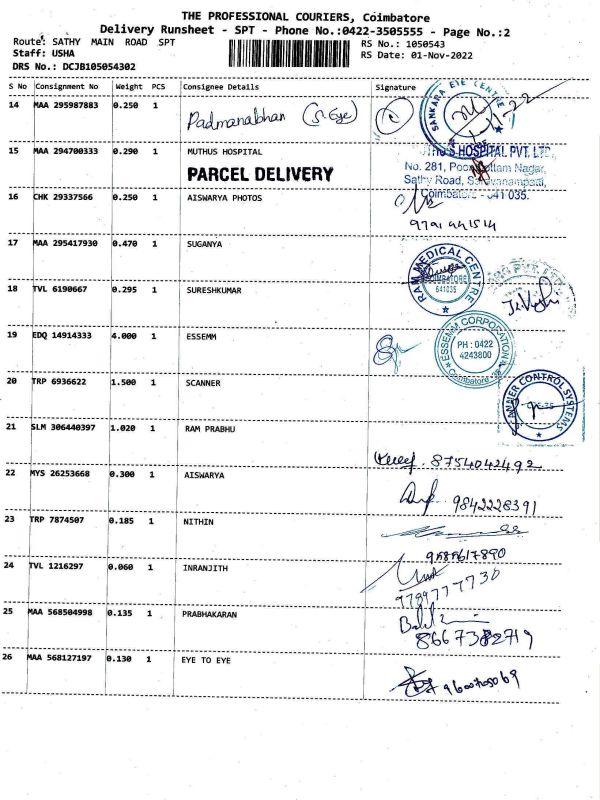 THE PROFESSIONAL COURIERS, Coimbatore
Delivery Runsheet - SPT - Phone No.:0422-3505555 - Page No.:2
Route: SATHY MAIN ROAD SPT
Staff: USHA
DRS No.: DCJB105054302
RS No.: 1050543
RS Date: 01-Nov-2022
S No Consignment No Weight PCS Consignee Details Signature
14 MAA 295987883 0.250 1 Padmanabhan (S. Eye)
SANKARA EYE CENTRE
15 MAA 294700333 0.290 1 MUTHUS HOSPITAL
PARCEL DELIVERY
HOSPITAL PVT. LTD.,
No. 281,
Sathy Road, Saravanampatti,
Coimbatore - 641 035.
16 CHK 29337566 0.250 1 AISWARYA PHOTOS
9791441514
17 MAA 295417930 0.470 1 SUGANYA
RAM MEDICAL CENTRE
COIMBATORE
641035
PVT. LTD
18 TVL 6190667 0.295 1 SURESHKUMAR
19 EDQ 14914333 4.000 1 ESSEMM
ESSEMM CORPORATION
PH : 0422
4243800
Coimbatore
20 TRP 6936622 1.500 1 SCANNER
SCANNER CONTROL SYSTEMS
21 SLM 306440397 1.020 1 RAM PRABHU
8754042492
22 MYS 26253668 0.300 1 AISWARYA
9842228391
23 TRP 7874507 0.185 1 NITHIN
24 TVL 1216297 0.060 1 INRANJITH
7789777730
25 MAA 568504998 0.135 1 PRABHAKARAN
8667382719
26 MAA 568127197 0.130 1 EYE TO EYE
9600705069